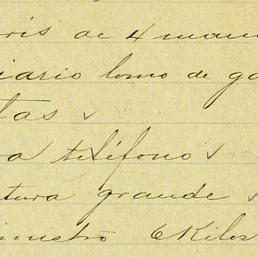 ris de 4 man
iario lomo de ga
tas
a teléfono
tura grande
imetro 6 Kilos